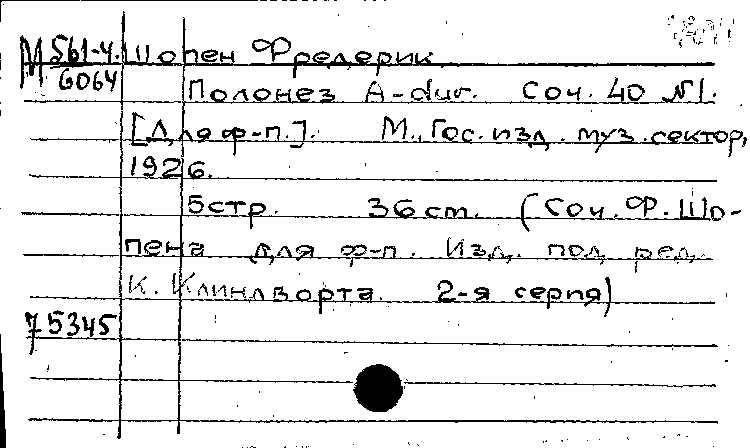 М 561-4. Шопен Фредерик
6064
Полонез A-dur. Соч. 40 №1.
[Для ф-п.]. М., Гос. изд. муз. сектор,
1926.
5 стр. 36 см. (Соч. Ф. Шо-
пена для ф-п. Изд. под ред.
К. Клиндворта. 2-я серия)
75345